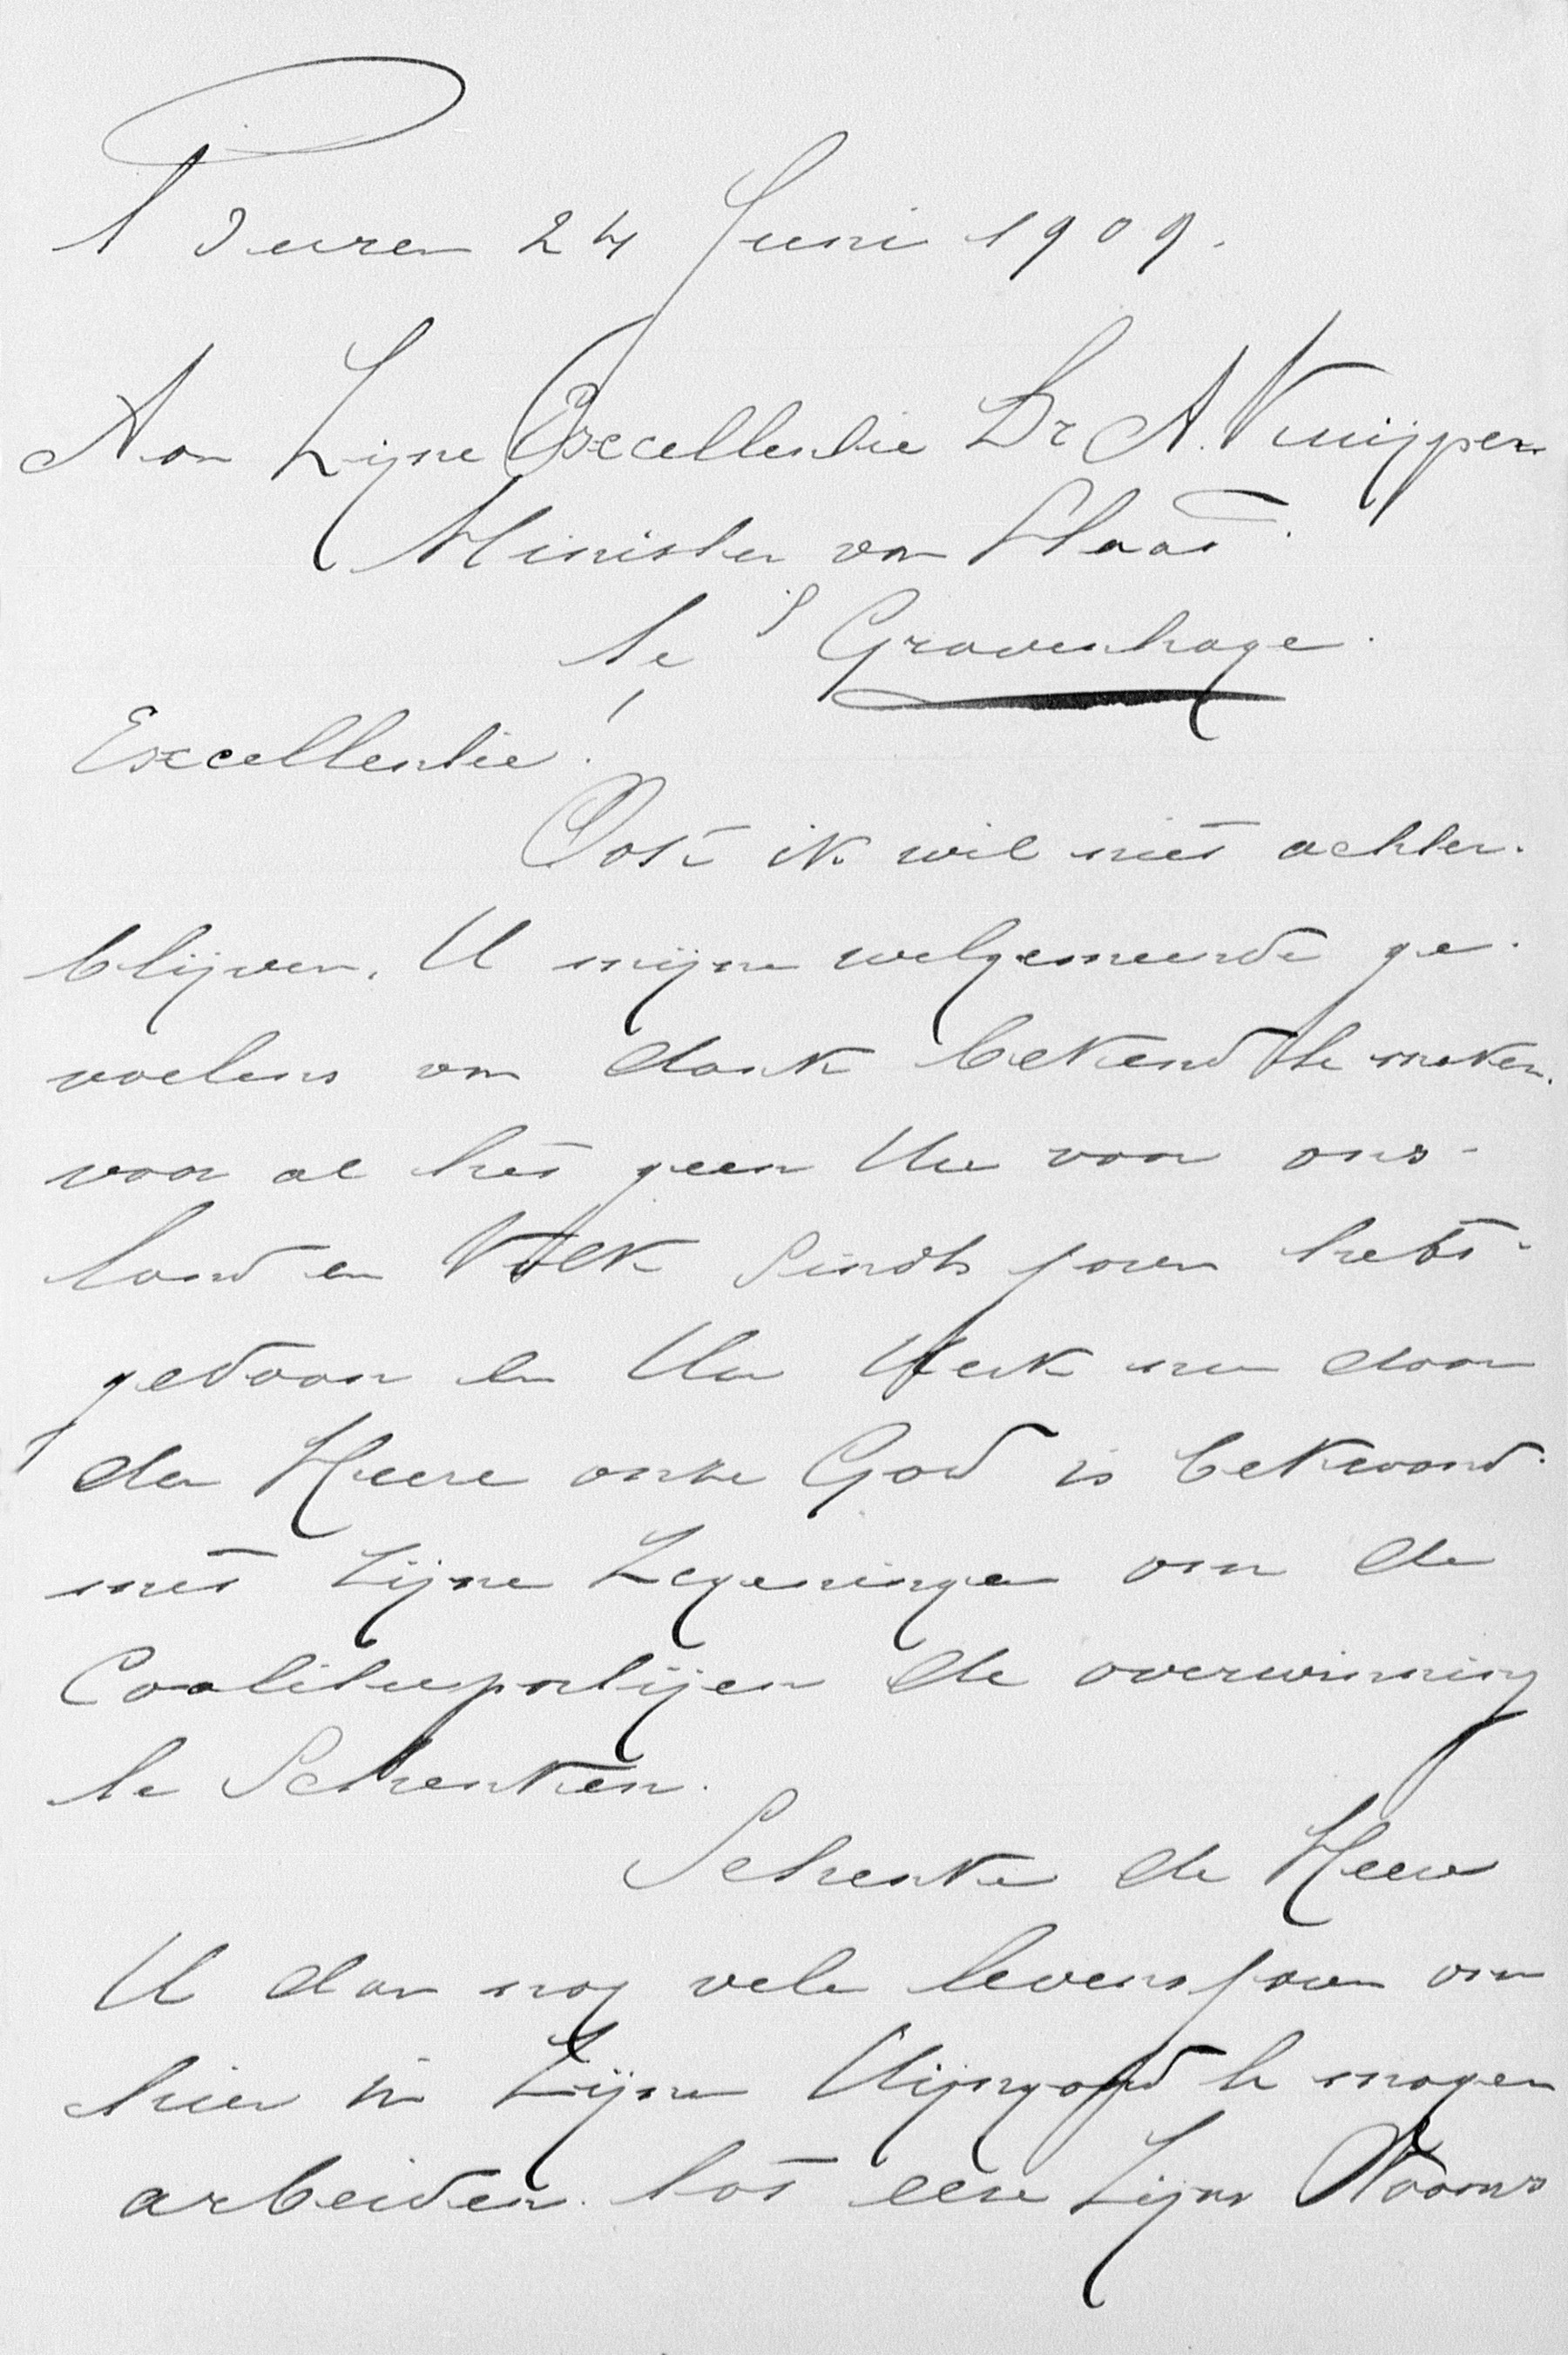 Buren 24 Juni 1909.
Aan Zijne Excellentie Dr A. Kuijper
Minister van Staat.
te 's Gravenhage.
Excellentie!
Ook ik wil niet achter-
blijven. U mijne welgemeende ge-
voelens van dank bekend te maken.
voor al het geen Uw voor ons-
land en Volk Sindts jaren hebt-
gedaan en Uw Werk nu door
den Heere onze God is bekroond.
met Zijne Zegeningen om de
Coalitiepartijen de overwinning
te Schenken.
Schenke de Heere
U dan nog vele levensjaren om
hier in Zijne Wijngaard te mogen
arbeiden. tot eere Zijns Naams